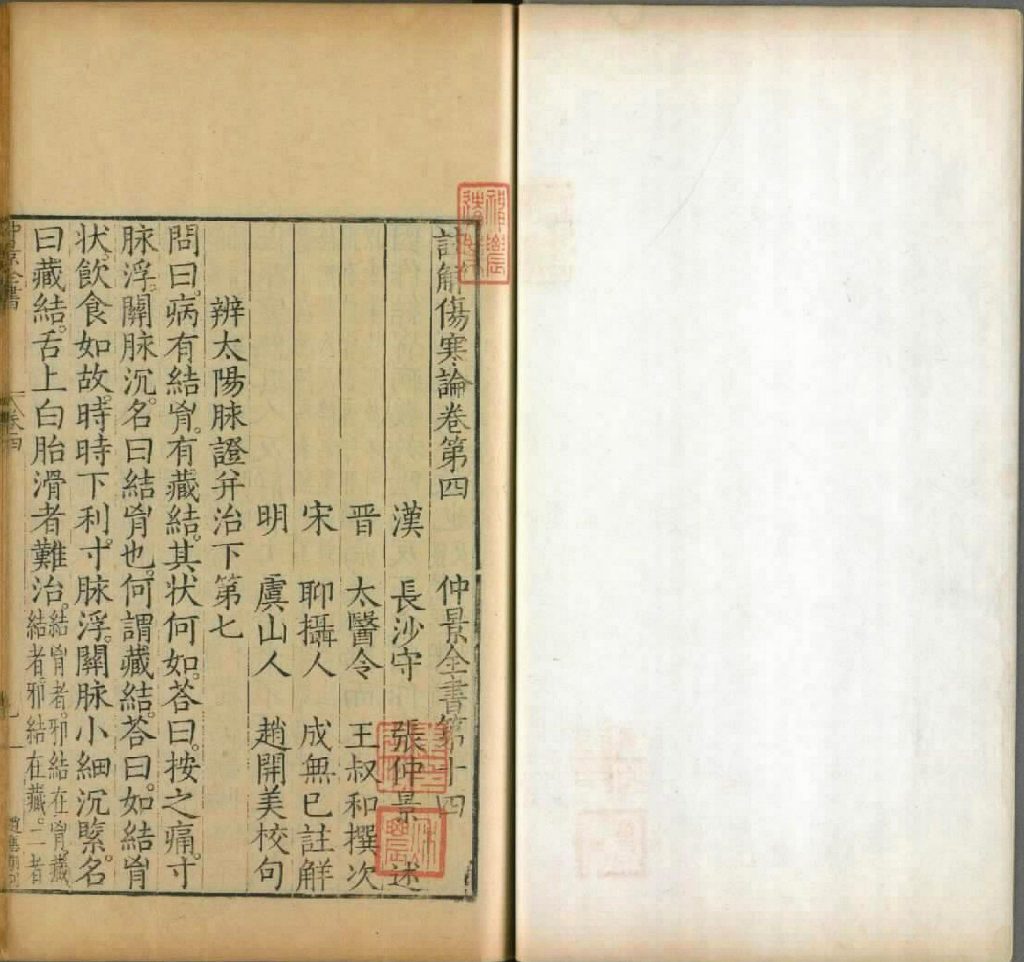 註解傷寒論卷第四　仲景全書第十四
漢　長沙守　張仲景　述
晉　太醫令　王叔和撰次
宋　聊攝人　成無已註解
明　虞山人　趙開美校句
辨太陽脉證并治下第七
問曰。病有結胷。有藏結。其状何如。荅曰。按之痛。寸
脉浮。關脉沉。名曰結胷也。何謂藏結。荅曰。如結胷
状。飲食如故。時時下利。寸脉浮。關脉小細沉緊。名
曰藏結。舌上白胎滑者難治。結胷者。邪結在胷。藏
結者。邪結在藏。二者
仲景全書
卷四